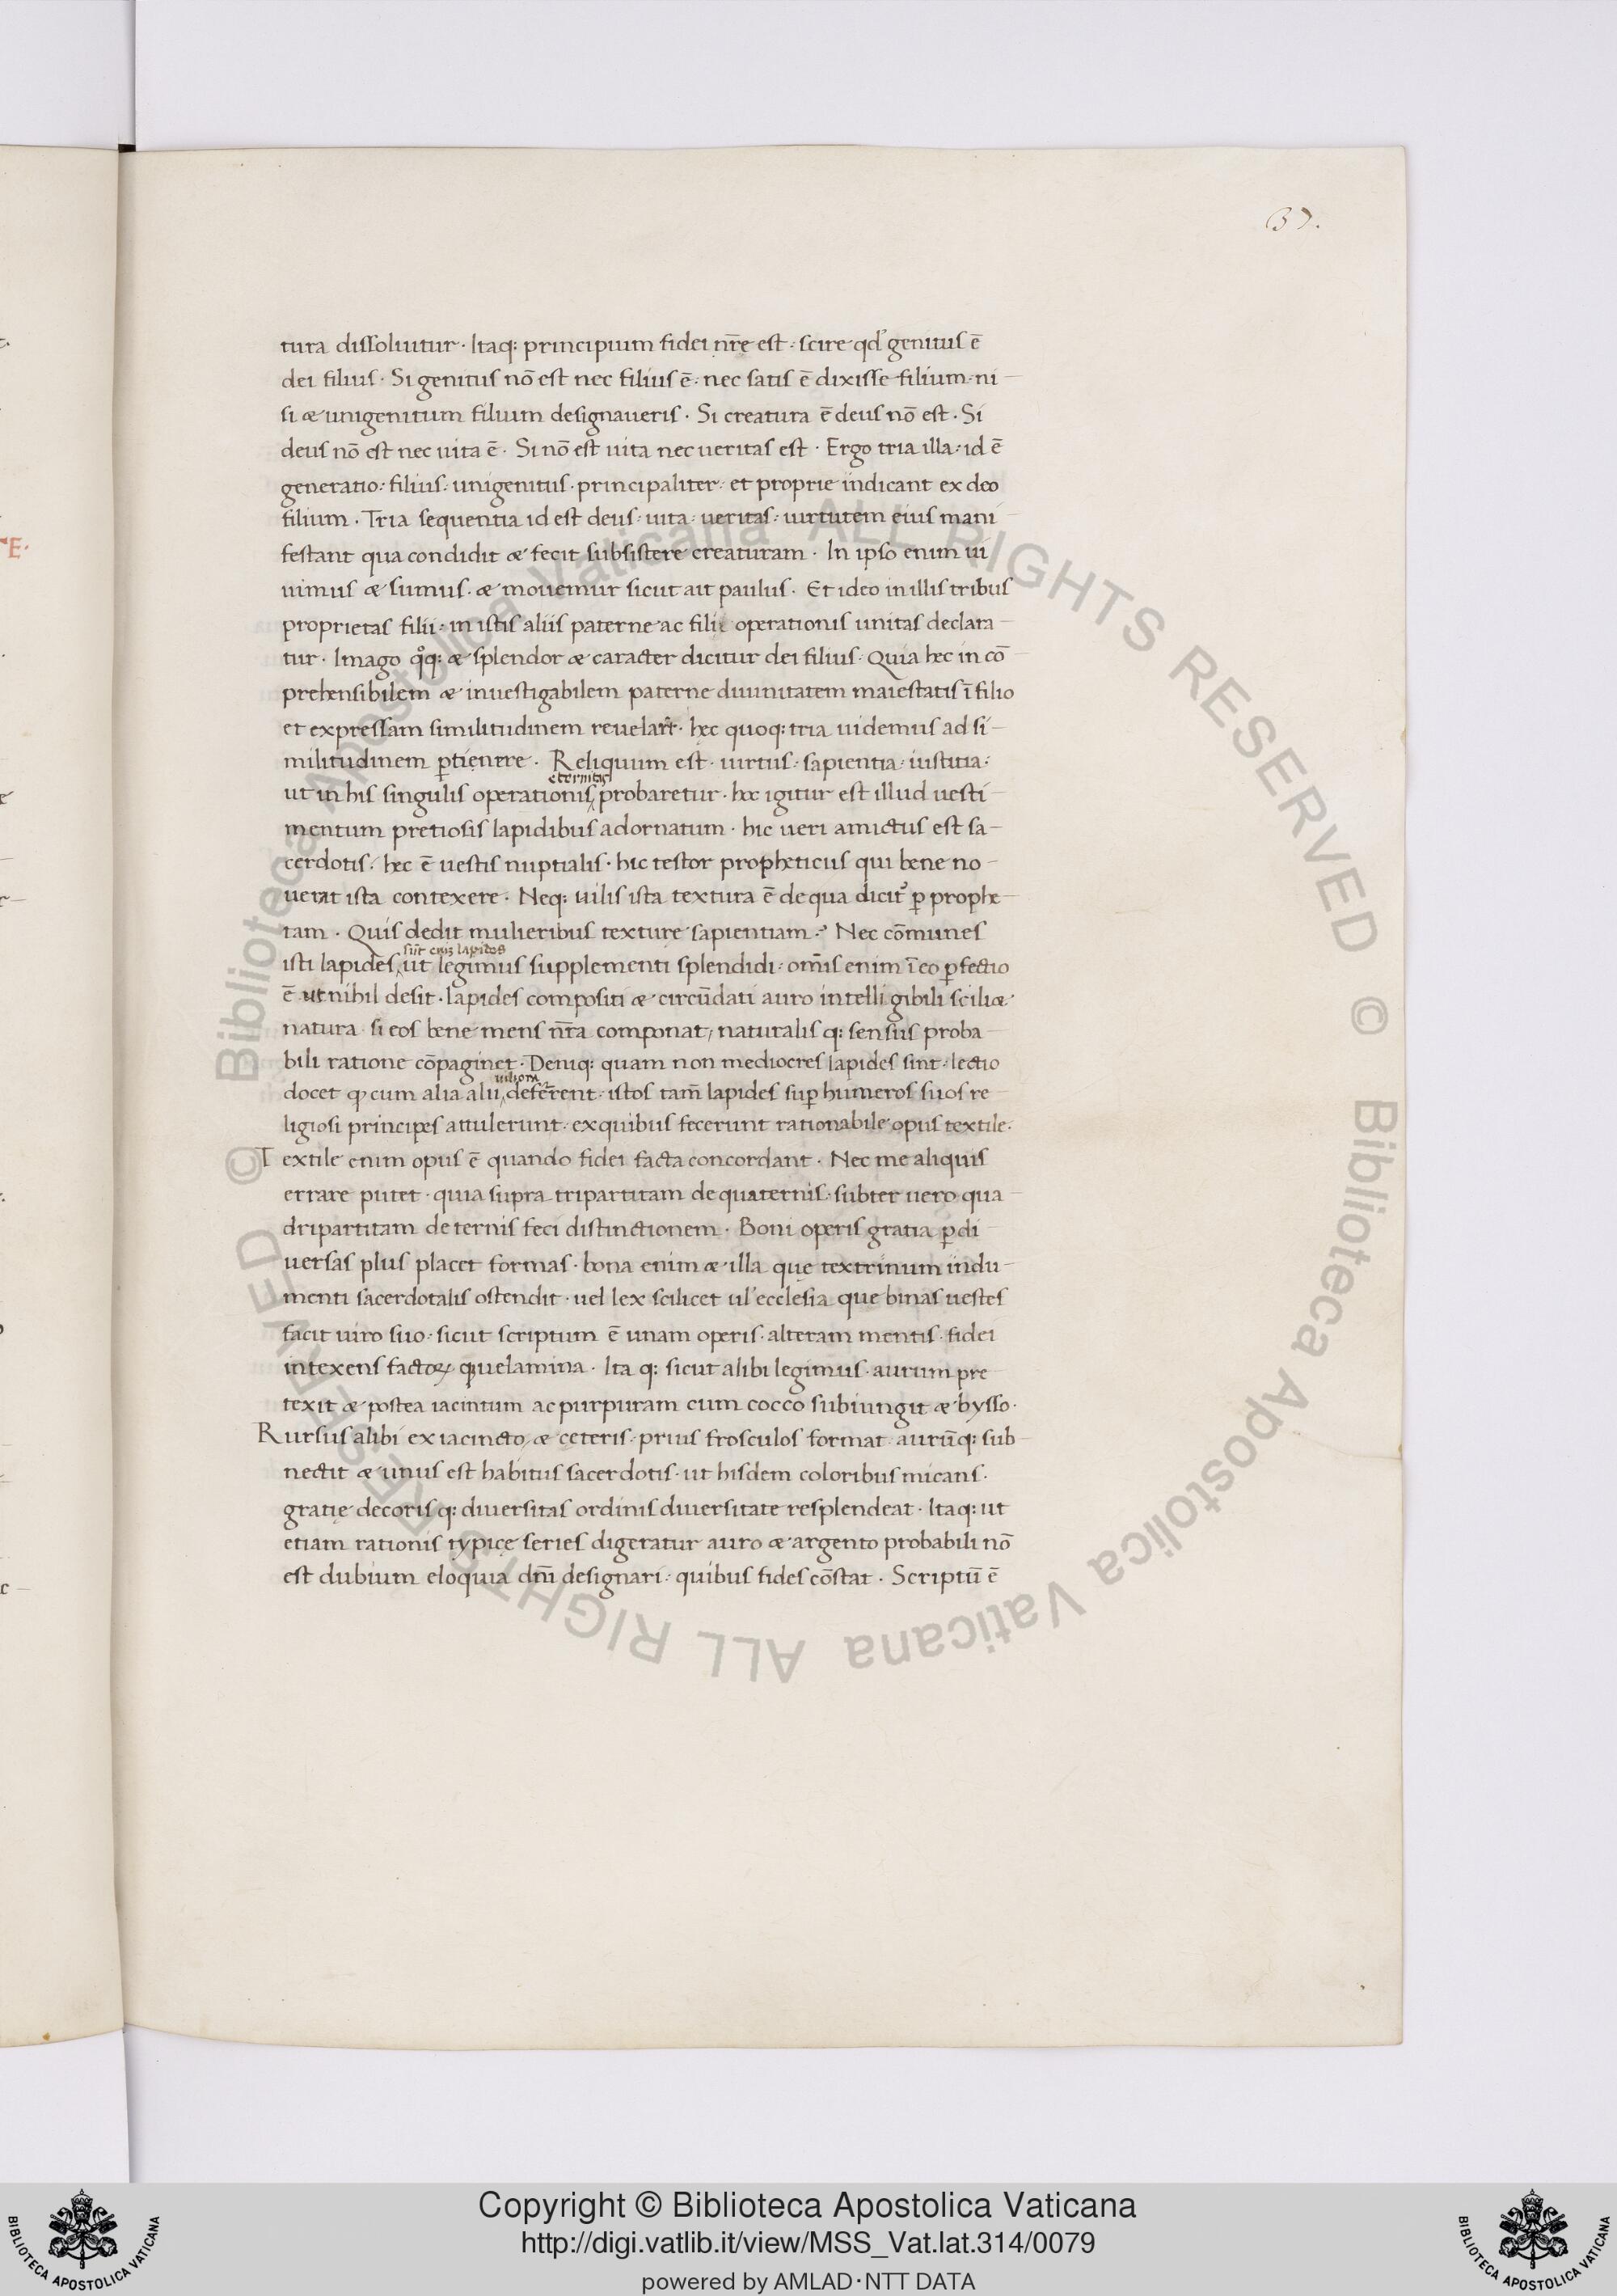 37.
tura dissoluitur · Itaq; principium fidei nr̄e est : scire qd' genitus ē
dei filius · Si genitus nō est nec filius ē : nec satis ē dixisse filium · ni
si æ unigenitum filium designaueris · Si creatura ē deus nō est · Si
deus nō est nec uita ē · Si nō est uita nec ueritas est · Ergo tria illa : id ē
generatio : filius : unigenitus · principaliter : et proprie indicant ex deo
filium · Tria sequentia id est deus : uita : ueritas : uirtutem eius mani
festant qua condidit æ fecit subsistere creaturam · In ipso enim ui
uimus æ sumus · æ mouemur sicut ait paulus · Et ideo in illis tribus
proprietas filii : in istis aliis paterne ac filii operationis unitas declara
tur · Imago qͦq; æ splendor æ caracter dicitur dei filius · Quia hec in cō
prehensibilem æ inuestigabilem paterne diuinitatem maiestatis ī filio
et expressam similitudinem reuelart̄ · hęc quoq; tria uidemus ad si
militudinem p̱tienere · Reliquum est · uirtus : sapientia : iustitia :
eternitas
ut in his singulis operationis probaretur · hoc igitur est illud uesti
mentum pretiosis lapidibus adornatum · hic ueri amictus est sa
cerdotis · hec ē uestis nuptialis · hic testor propheticus qui bene no
uerat ista contexere · Neq; uilis ista textura ē de qua dicit᷑ p̱ prophe
tam · Quis dedit mulieribus texture sapientiam ? Nec cōmunes
sūt eius lapides
isti lapides ut legimus supplementi splendidi : om̄is enim ī eo p̱fectio
ē ut nihil desit · lapides compositi æ circūdati auro intelligibili scilicæ
natura si eos bene mens nr̄a componat, naturalis q; sensus proba
bili ratione cōpaginet · Deniq; quam non mediocres lapides sint : lectio
uiliora
docet ꝙ cum alia alii deferrent : istos tam̄ lapides sup̱ humeros suos re
ligiosi principes attulerunt : ex quibus fecerunt rationabile opus textile ·
Textile enim opus ē quando fidei facta concordant · Nec me aliquis
errare putet · quia supra tripartitam de quaternis : subter uero qua
dripartitam de ternis feci distinctionem · Boni operis gratia p̱ di
uersas plus placet formas · bona enim æ illa quę textrinum indu
menti sacerdotalis ostendit · uel lex scilicet ul' ecclesia que binas uestes
facit uiro suo : sicut scriptum ē unam operis · alteram mentis · fidei
intexens factoꝝ q; uelamina · Ita q; sicut alibi legimus · aurum pre
texit æ postea iacintum ac purpuram cum cocco subiungit æ bysso ·
Rursus alibi ex iacincto æ cęteris · prius frosculos format aurūq; sub
nectit æ unus est habitus sacerdotis · ut hisdem coloribus micans ·
gratię decoris q; diuersitas ordinis diuersitate resplendeat · Itaq; ut
etiam rationis typicę series digeratur auro æ argento probabili nō
est dubium eloquia dn̄i designari : quibus fides cōstat · Scriptū ē
© Biblioteca Apostolica Vaticana ALL RIGHTS RESERVED © Biblioteca Apostolica Vaticana ALL RIGHTS RESERVED
Copyright © Biblioteca Apostolica Vaticana
http://digi.vatlib.it/view/MSS_Vat.lat.314/0079
powered by AMLAD·NTT DATA
BIBLIOTECA APOSTOLICA VATICANA
BIBLIOTECA APOSTOLICA VATICANA